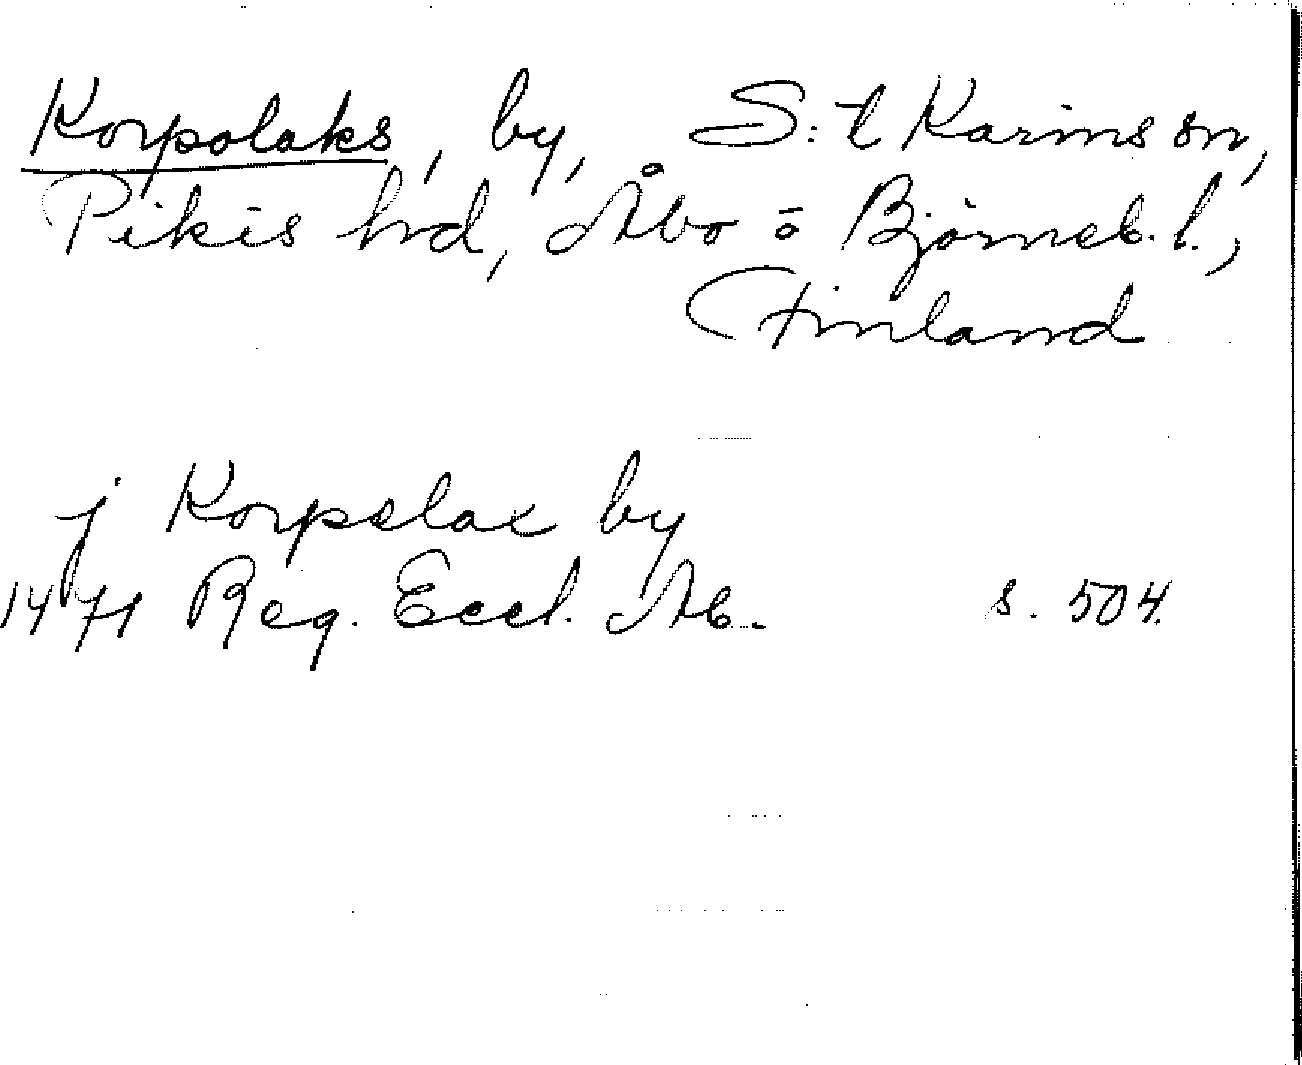 Korpolaks, by, S:t Karins sn,
Pikis hd, Åbo o Bjørneb. l.,
Finland
j Korpolax by
1471 Reg. Eccl. Ab. s. 504.